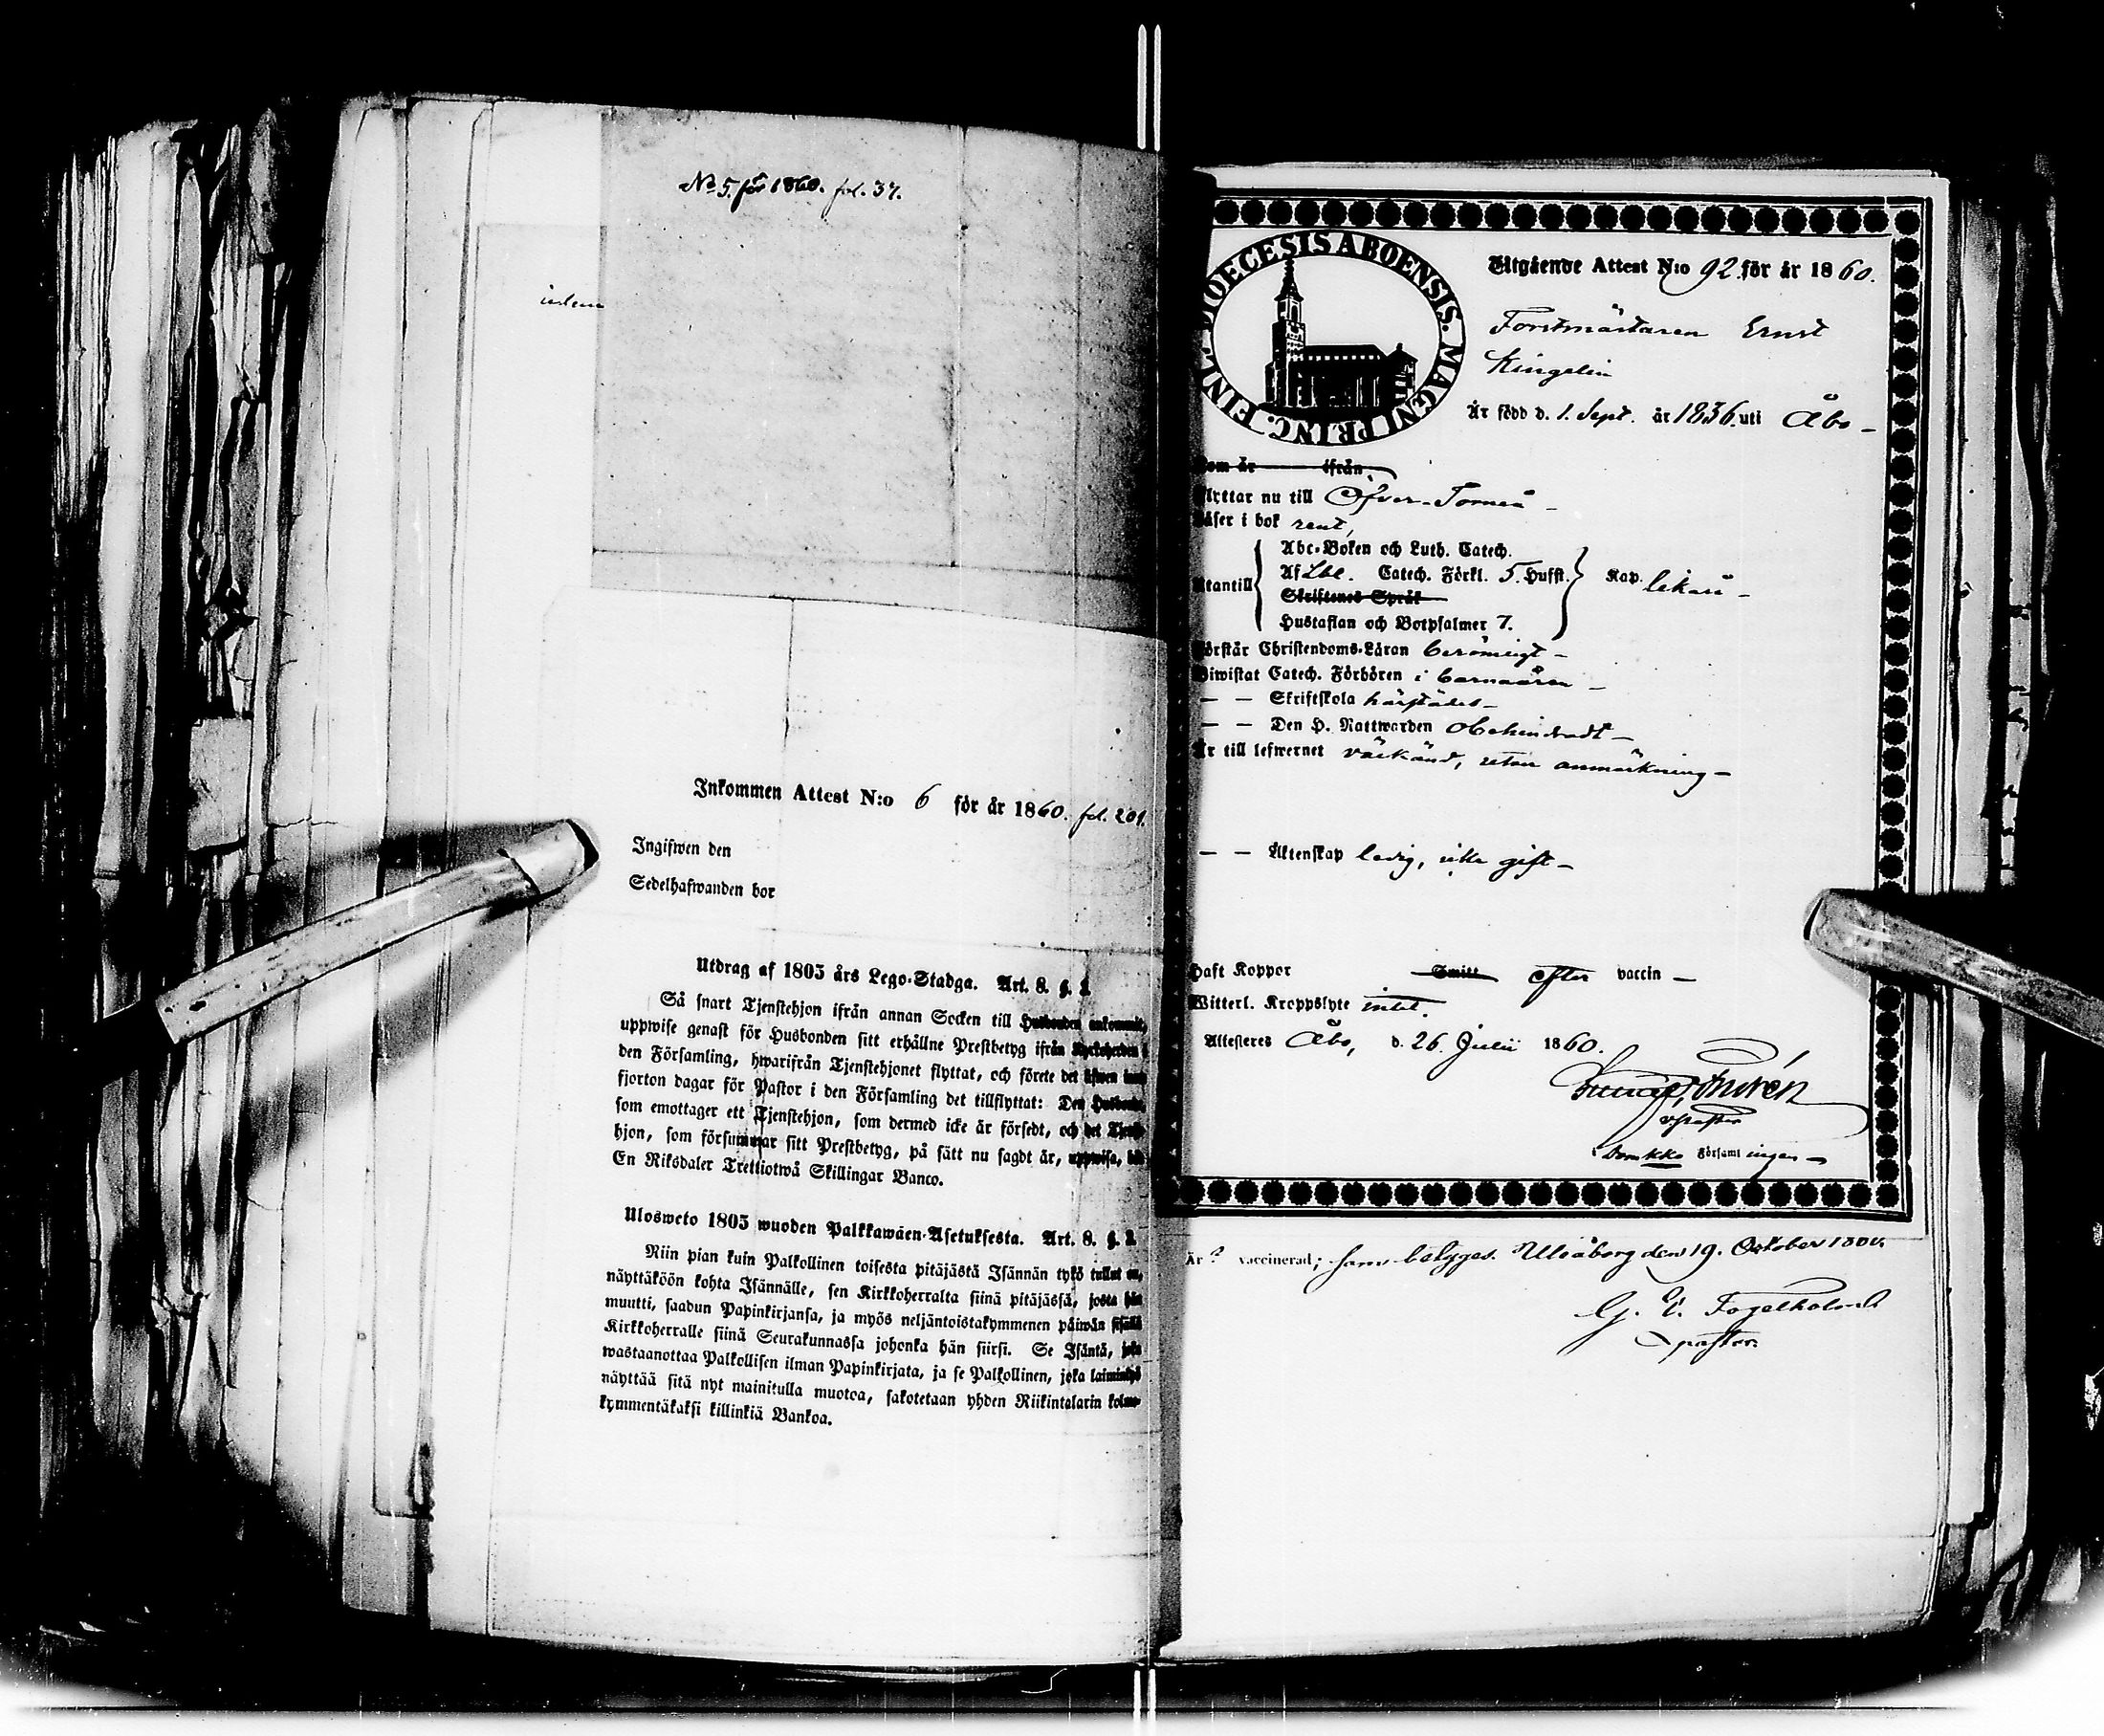 No 5. för 1860. fol. 37.
Inkommen Attest N:o 6 för år 1860. fol. 201.
Ingifwen den
Sedelhafwanden bor
Utdrag af 1805 års Lego-Stadga. Art. 8. §. 2.
Så snart Tjenstehjon ifrån annan Socken till Husbonden ankommit,
uppwise genast för Husbonden sitt erhållne Prestbetyg ifrån Kyrkoherden i
den Församling, hwarifrån Tjenstehjonet flyttat, och förete det äfwen inom
fjorton dagar för Pastor i den Församling det tillflyttat: Den Husbonde,
som emottager ett Tjenstehjon, som dermed icke är försedt, och det Tjenste-
hjon, som försummar sitt Prestbetyg, på sätt nu sagdt är, uppwisa,
En Riksdaler Trettiotwå Skillingar Banco.
Ulosweto 1805 wuoden Palkkawäen-Asetuksesta. Art. 8. §. 2.
Niin pian kuin Palkollinen toisesta pitäjästä Isännän tykö tullut on,
näyttäköön kohta Isännälle, sen Kirkkoherralta siinä pitäjässä, josta hän
muutti, saadun Papinkirjansa, ja myös neljäntoistakymmenen päiwän sisällä
Kirkkoherralle siinä Seurakunnassa johonka hän siirsi. Se Isäntä, joka
wastaanottaa Palkollisen ilman Papinkirjata, ja se Palkollinen, joka laiminlyö
näyttää sitä nyt mainitulla muotoa, sakotetaan yhden Riikintalarin kolme-
kymmentäkaksi killinkiä Bankoa.
FINL. DIOECESIS ABOENSIS. MAGNI PRINC.
Utgående Attest N:o 92 för år 1860.
Forstmästaren Ernst
Kingelin
Är född d. 1. Sept. år 1836 uti Åbo
Som är ifrån
Flyttar nu till Öfver-Torneå
Läser i bok rent,
Abc-Boken och Luth. Catech.
Utantill Af Lbl. Catech. Förkl. 5. Hufst. Kap. likaså
Skriftenes Språk
Hustaflan och Botpsalmer 7.
Förstår Christendoms-Läran berömligt
Biwistat Catech. Förhören i barnaåren
— — Skriftskola härstädes
— — Den H. Nattwarden obehindradt
Är till lefwernet välkänd, utan anmärkning
— — Äktenskap ledig, icke gift
Haft Koppor Smitt efter vaccin
Witterl. Kroppslyte intet.
Attesteres Åbo, d. 26. Julii 1860.
v. pastor
Domkko Församlingen
Är vaccinerad; som betygas. Uleåborg den 19. October 1860.
pastor.